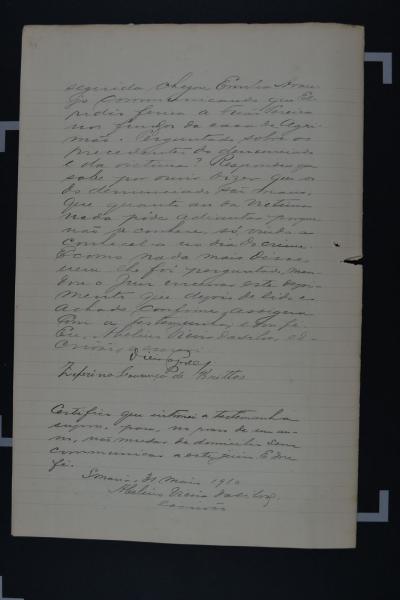 seguida chegou Emilia Arau-
jo communicando que El-
pidio ferira a
nos fundos da casa de Agri-
Perguntado sobre os
precedentes do denunciado
e da victima? Respondeu que
sabe por ouvir dizer que os
do denunciado são maus,
que quanto aos da victima
nada póde adiantar porque
não o conhece, só vindo a
conhecel-a no dia do crime.
E como nada mais disse
nem lhe foi perguntado, man-
dou o Juiz encerrar este depoi-
mento que depois de lido e
achado conforme, assigna
com a testemunha, e dou fé.
Eu, Vieira da Silva, es-
crivão, o escrevi.
Zeferino Lourenço de Brittos
Certifico que intimei a testemunha
supra, para, no praso de um an-
no, não mudar de domicilio sem
communicar a este juizo. E dou
fé.
S. Maria, 31 Maio 1910
Vieira da Silva
escrivão